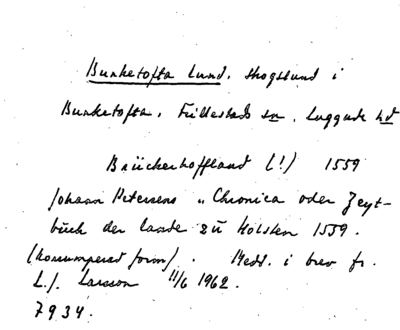 Bunketofta Lund. Skogslund i
Bunketofta, Fjällestads sn, Luggude hd
Brückerhoffland (!) 1559
Johann Petersens „Chronica oder Zeyt-
büch der lande zü Holsten 1559.
(korrumperad form). Medd. i brev fr.
L.J. Larsson 11/6 1962.
7934.